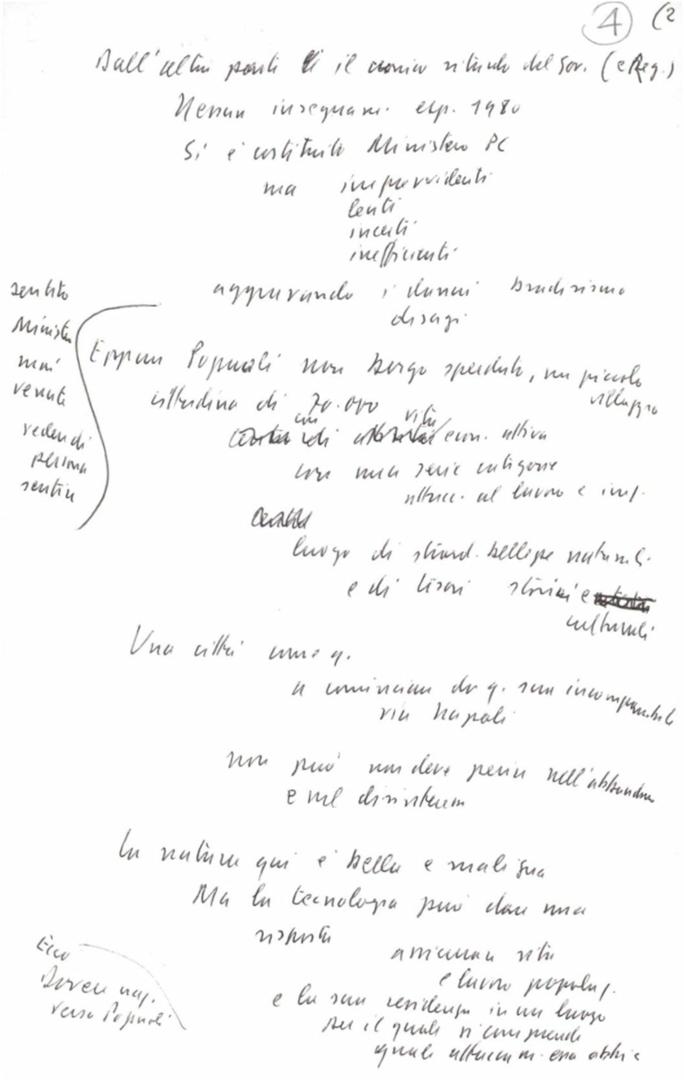 4 (2
Dall'altra parte il cronico ritardo del Gov. (e Reg.)
Nessun insegnam. esp. 1980
Si è costituito Ministero PC
ma imprevvidenti
lenti
incerti
inefficienti
aggravando i danni bradisismo
disagi
sentito
Ministro
mai
venuto
vedere di
persona
sentire
Eppure Pozzuoli non borgo sperduto, un piccolo
villaggio
cittadina di 70.000
con vita econ. attiva
con una serie categorie
attacc. al lavoro e imp.
luogo di straord. bellezze natural.
e di tesori storici e
culturali
Una città come q.
a cominciare da q. sua incomparabile
via Napoli
non può non deve perire nell'abbandono
e nel disinteresse
La natura qui è bella e maligna
Ma la tecnologia può dare una
risposta
assicurare vita
e lavoro popolaz.
e la sua residenza in un luogo
per il quale si comprende
quale attaccam. essa abbia
Ecco
Dovere naz.
verso Pozzuoli